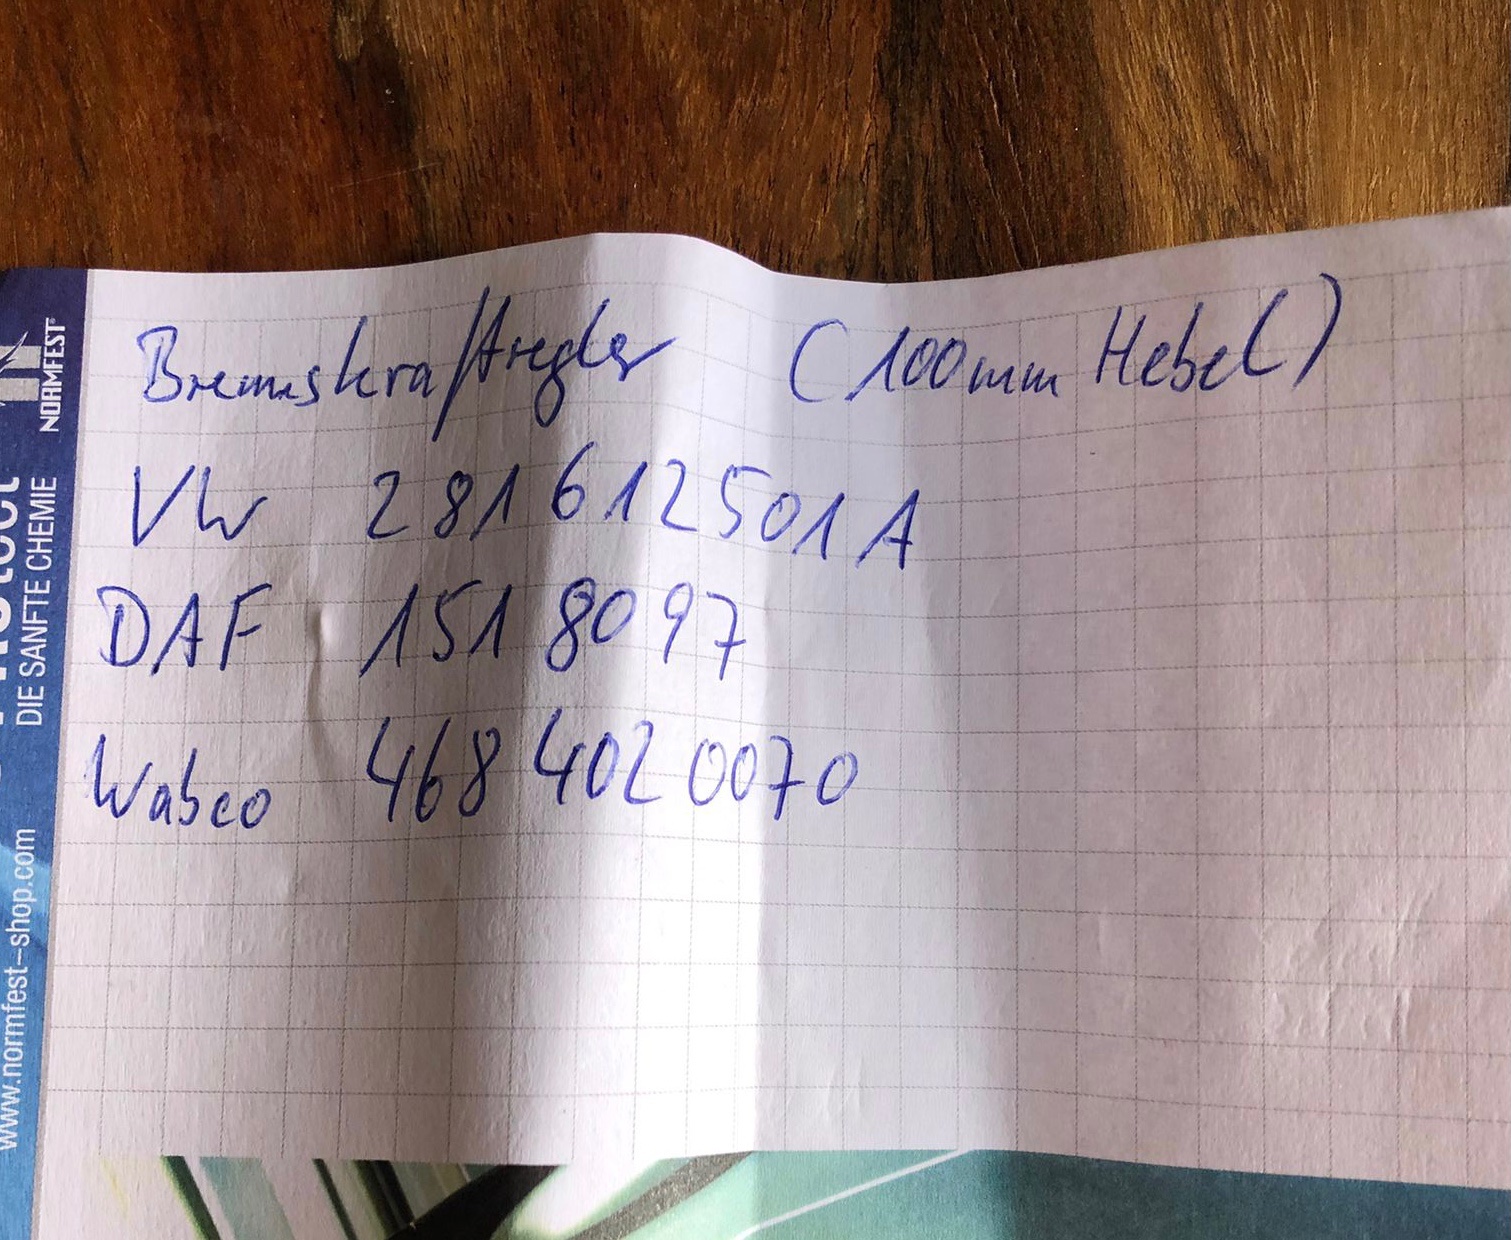 Bremskraftregler (100mm Hebel)
VW 281 612 501 A
DAF 151 80 97
Wabco 468 402 0070
NORMFEST®
DIE SANFTE CHEMIE
www.normfest-shop.com